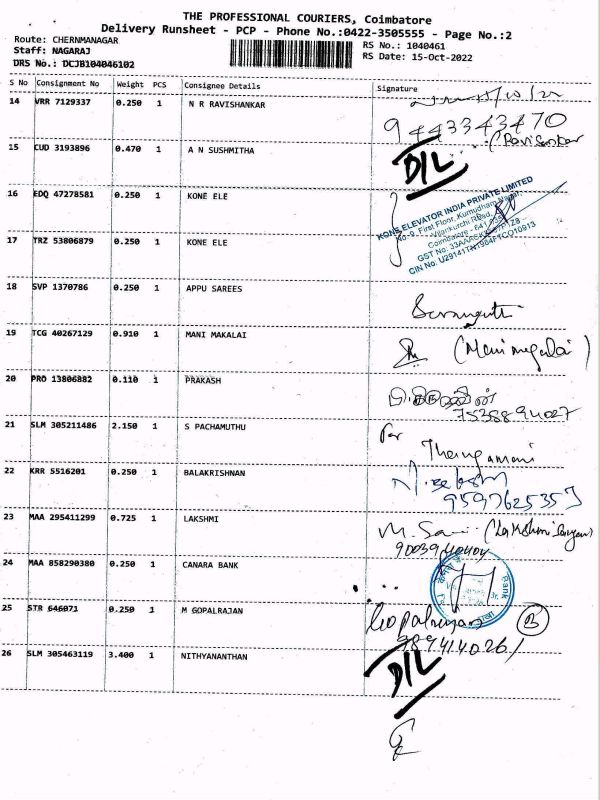 THE PROFESSIONAL COURIERS, Coimbatore
Delivery Runsheet - PCP - Phone No.:0422-3505555 - Page No.:2
Route: CHERNMANAGAR
Staff: NAGARAJ
DRS No.: DCJB104046102
RS No.: 1040461
RS Date: 15-Oct-2022
S No Consignment No Weight PCS Consignee Details Signature
14 VRR 7129337 0.250 1 N R RAVISHANKAR
9443343470
(Ravisankar
15 CUD 3193896 0.470 1 A N SUSHMITHA D/L
16 EDQ 47278581 0.250 1 KONE ELE
KONE ELEVATOR INDIA PRIVATE LIMITED
No-9, First Floor, Kumudham Nagar
Vilankurchi Road,
Coimbatore - 641
GST No. 33AAACK
CIN No. U29141TN1984FTCO10913
17 TRZ 53806879 0.250 1 KONE ELE
18 SVP 1370786 0.250 1 APPU SAREES
19 TCG 40267129 0.910 1 MANI MAKALAI (Manimegalai)
20 PRO 13806882 0.110 1 PRAKASH
7538894027
21 SLM 305211486 2.150 1 S PACHAMUTHU For
Thangamani
22 KRR 5516201 0.250 1 BALAKRISHNAN
9597625357
23 MAA 295411299 0.725 1 LAKSHMI M. Sani (Lakshmi
9003940404
24 MAA 858290380 0.250 1 CANARA BANK
25 STR 646071 0.250 1 M GOPALRAJAN Gopalrajan B
9894140261
26 SLM 305463119 3.400 1 NITHYANANTHAN D/L